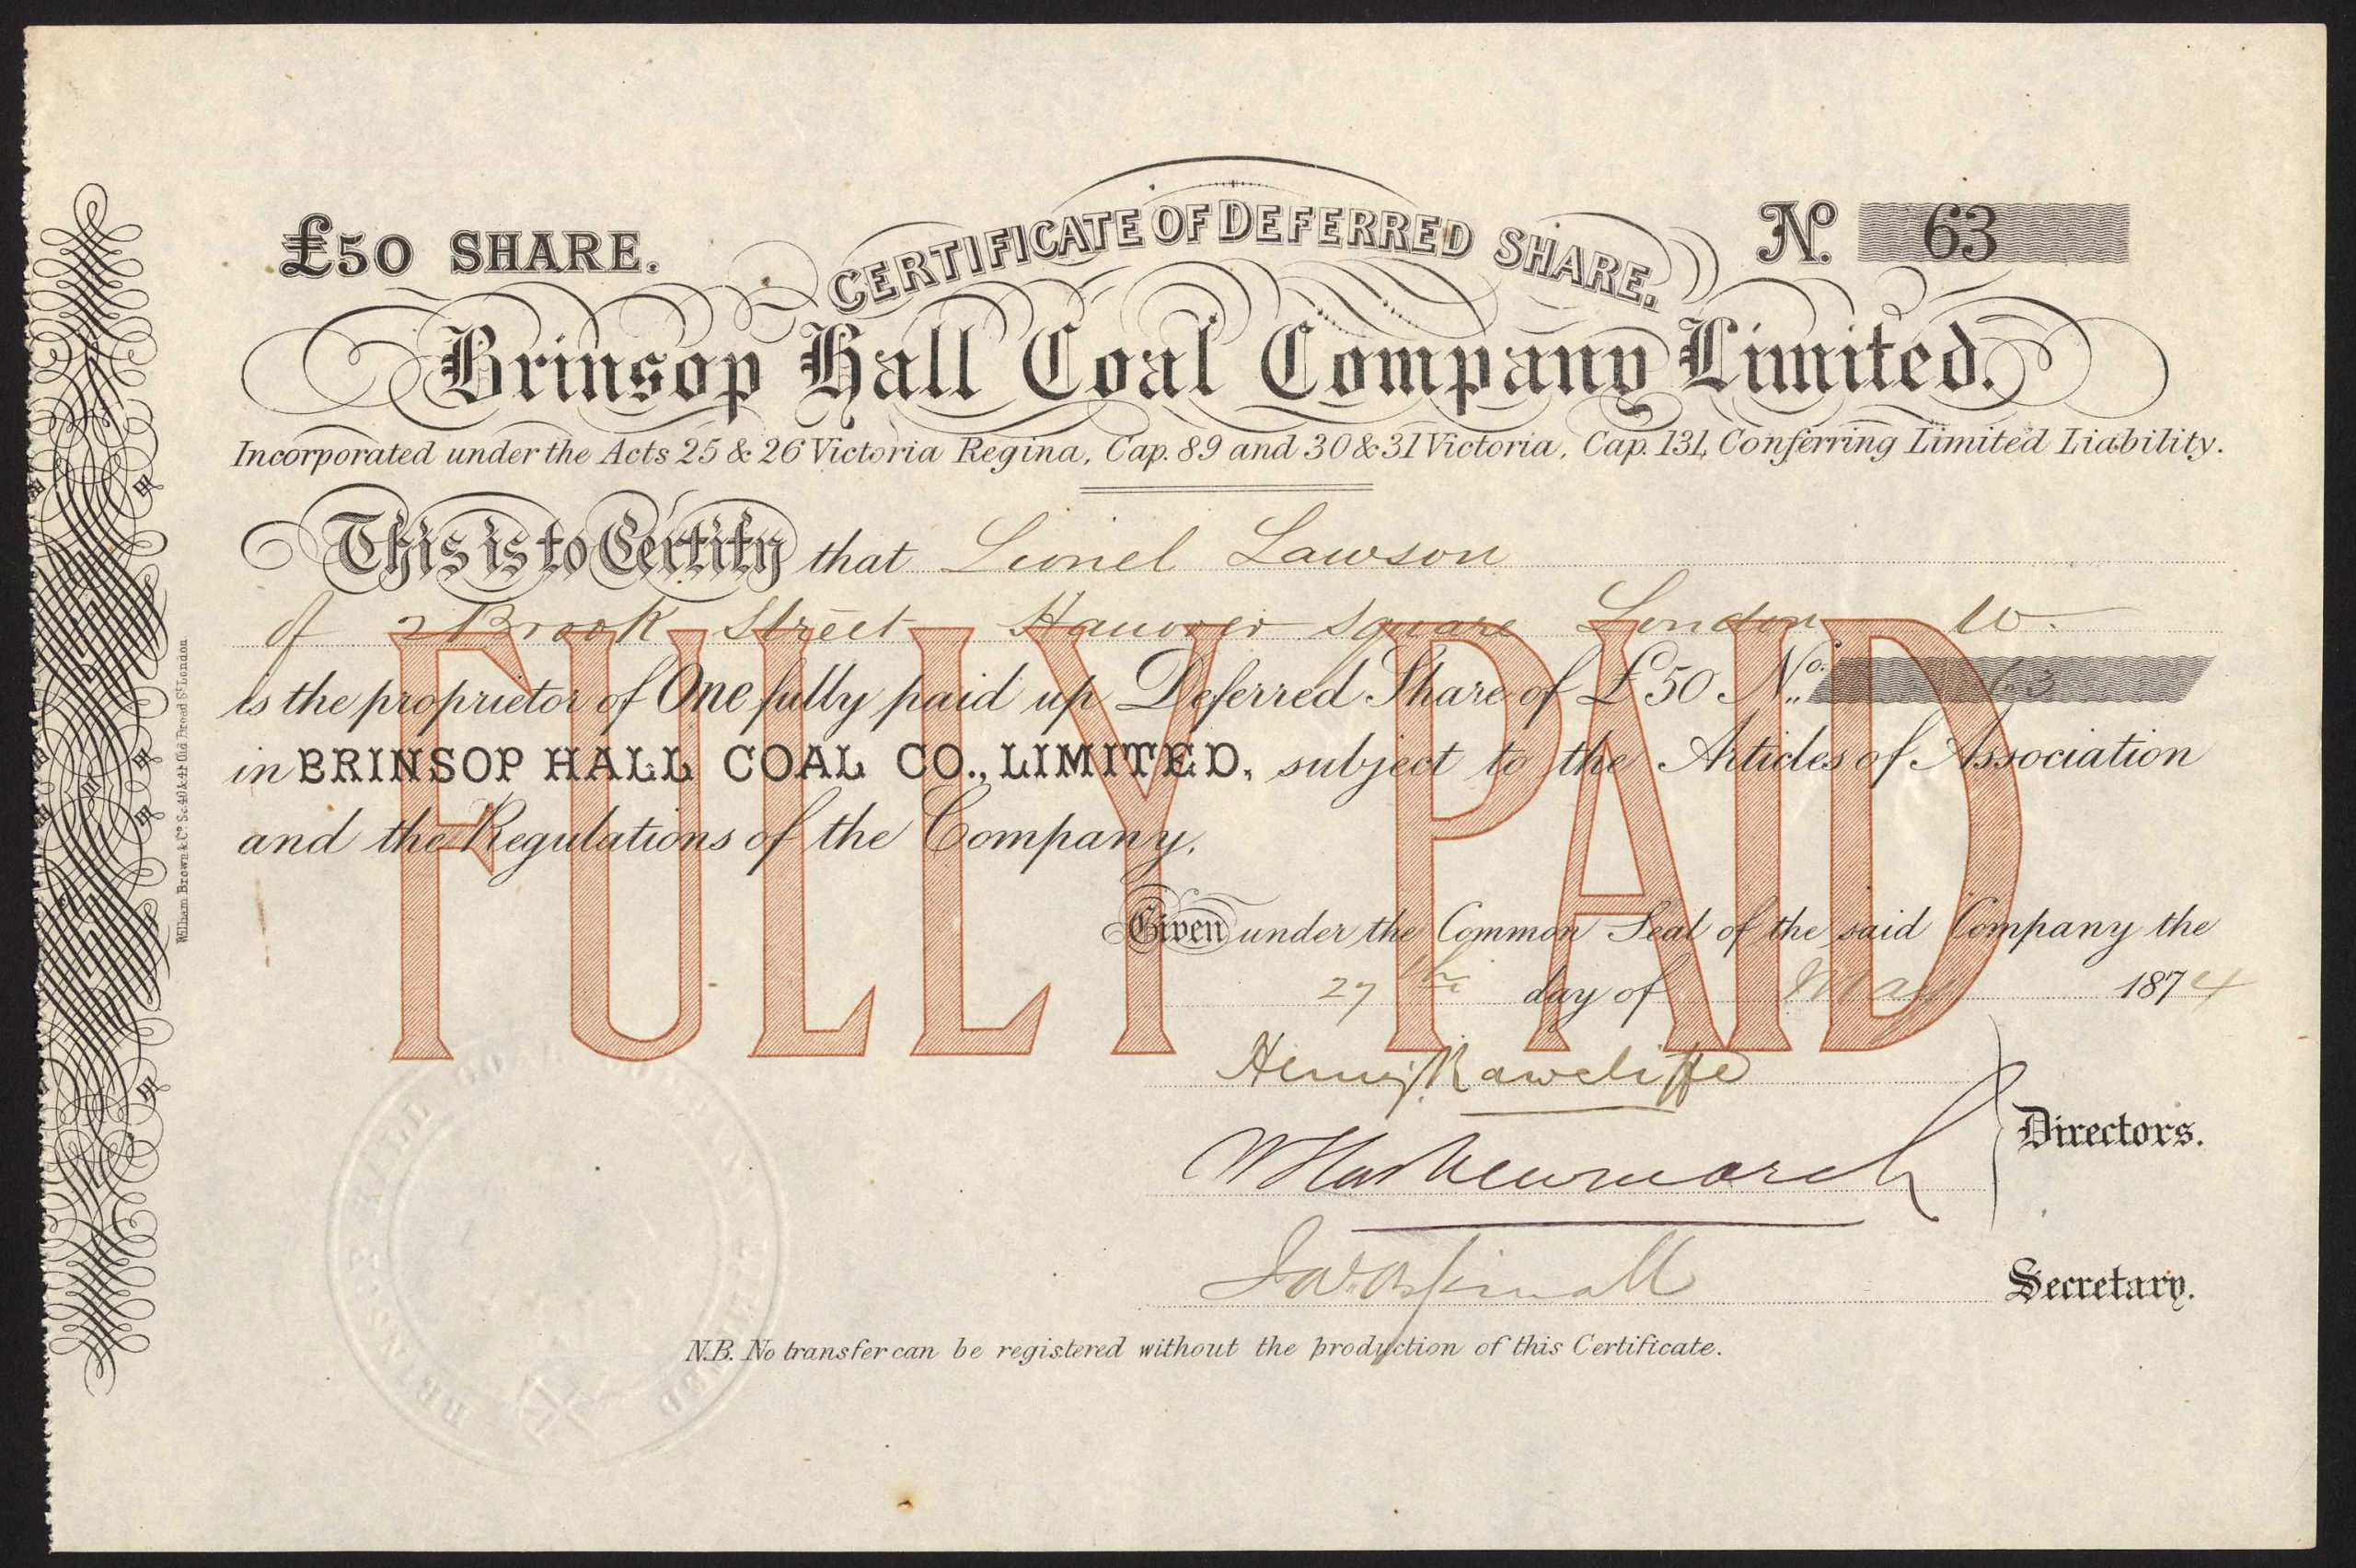 £50 SHARE.
CERTIFICATE OF DEFERRED SHARE.
No. 63
Brinsop Hall Coal Company Limited.
Incorporated under the Acts 25 & 26 Victoria Regina, Cap. 89 and 30 & 31 Victoria, Cap. 131, Conferring Limited Liability.
This is to Certify that Lionel Lawson
of 2 Brook Street Hanover Square London W.
is the proprietor of One fully paid up Deferred Share of £50 No. 63
in BRINSOP HALL COAL CO., LIMITED, subject to the Articles of Association
and the Regulations of the Company.
FULLY PAID
Given under the Common Seal of the said Company the
27th day of May 1874
Henry Rawcliffe
Newmarch
Directors.
Secretary.
N.B. No transfer can be registered without the production of this Certificate.
BRINSOP HALL COAL COMPANY LIMITED
William Brown & Co. Sc. 40 & 41 Old Broad St. London